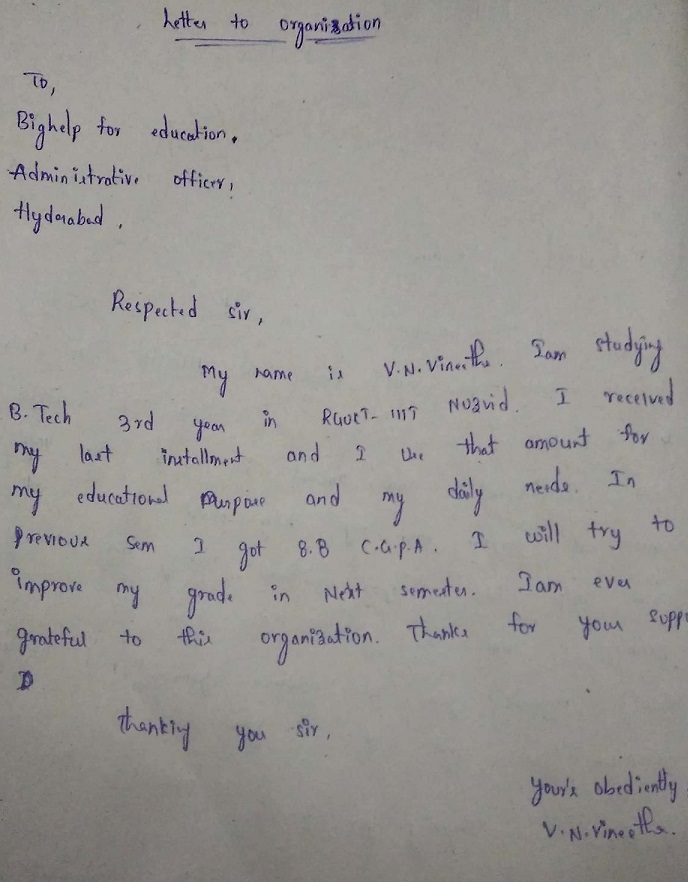 Letter to organization
To,
Bighelp for education.
Administrative officer,
Hyderabad.
Respected sir,
My name is V.N.Vineetha. Iam studying
B.Tech 3rd year in RGUKT-IIIT Nuzvid. I received
my last installment and I use that amount for
my educational purpose and my daily needs. In
previous sem I got 8.8 C.G.P.A. I will try to
improve my grade in Next semester. Iam ever
grateful to this organization. Thanks for your supp
thanking you sir,
your's obediently
V.N.Vineetha.